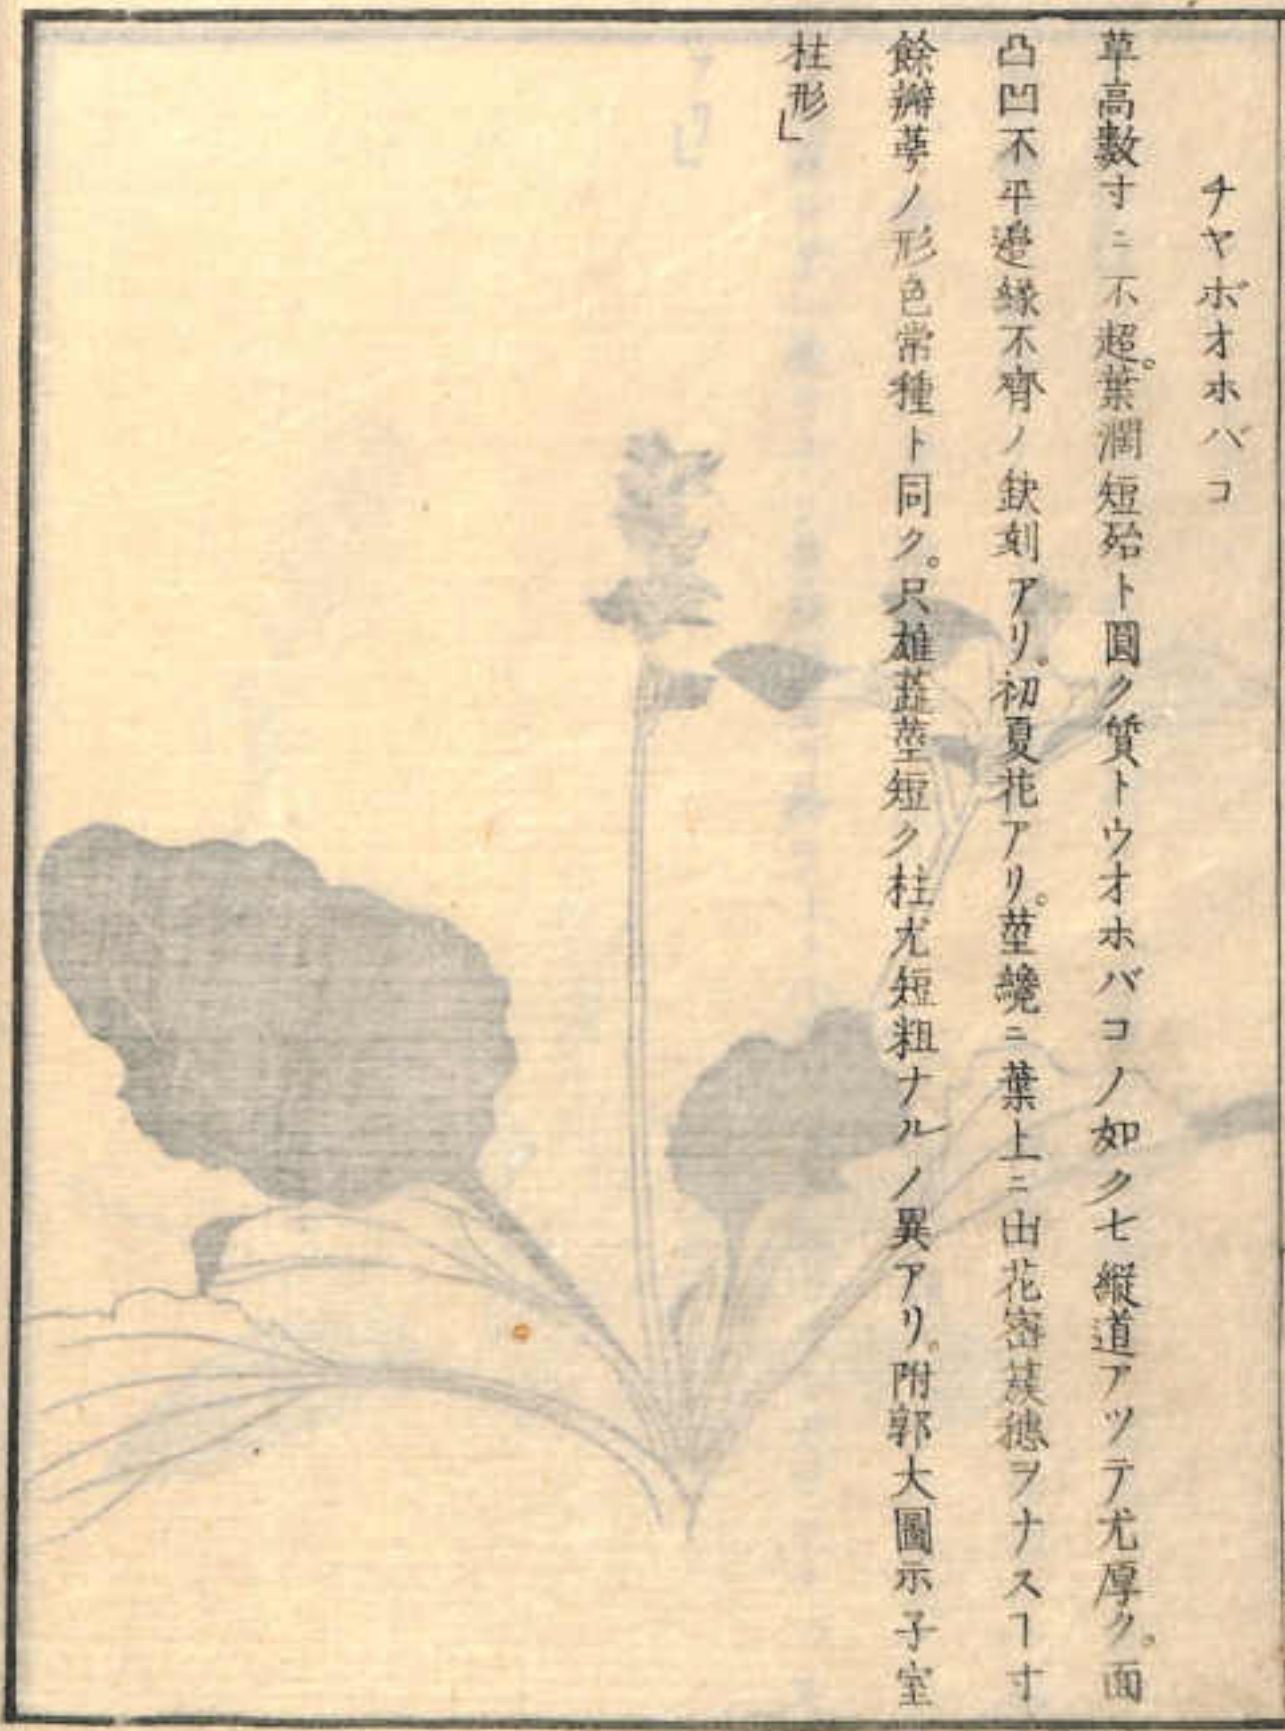 チヤボオホバコ
草高數寸ニ不超。葉濶短殆ト圓ク質トウオホバコノ如ク七縱道アツテ尤厚ク。面
凸凹不平邊緣不齊ノ鈌刻アリ。初夏花アリ。莖纔ニ葉上ニ出花密蔟穗ヲナスヿ寸
餘瓣萼ノ形色常種ト同ク。只雄蕋莖短ク柱尤短粗ナルノ異アリ。附郭大圖示子室
柱形」